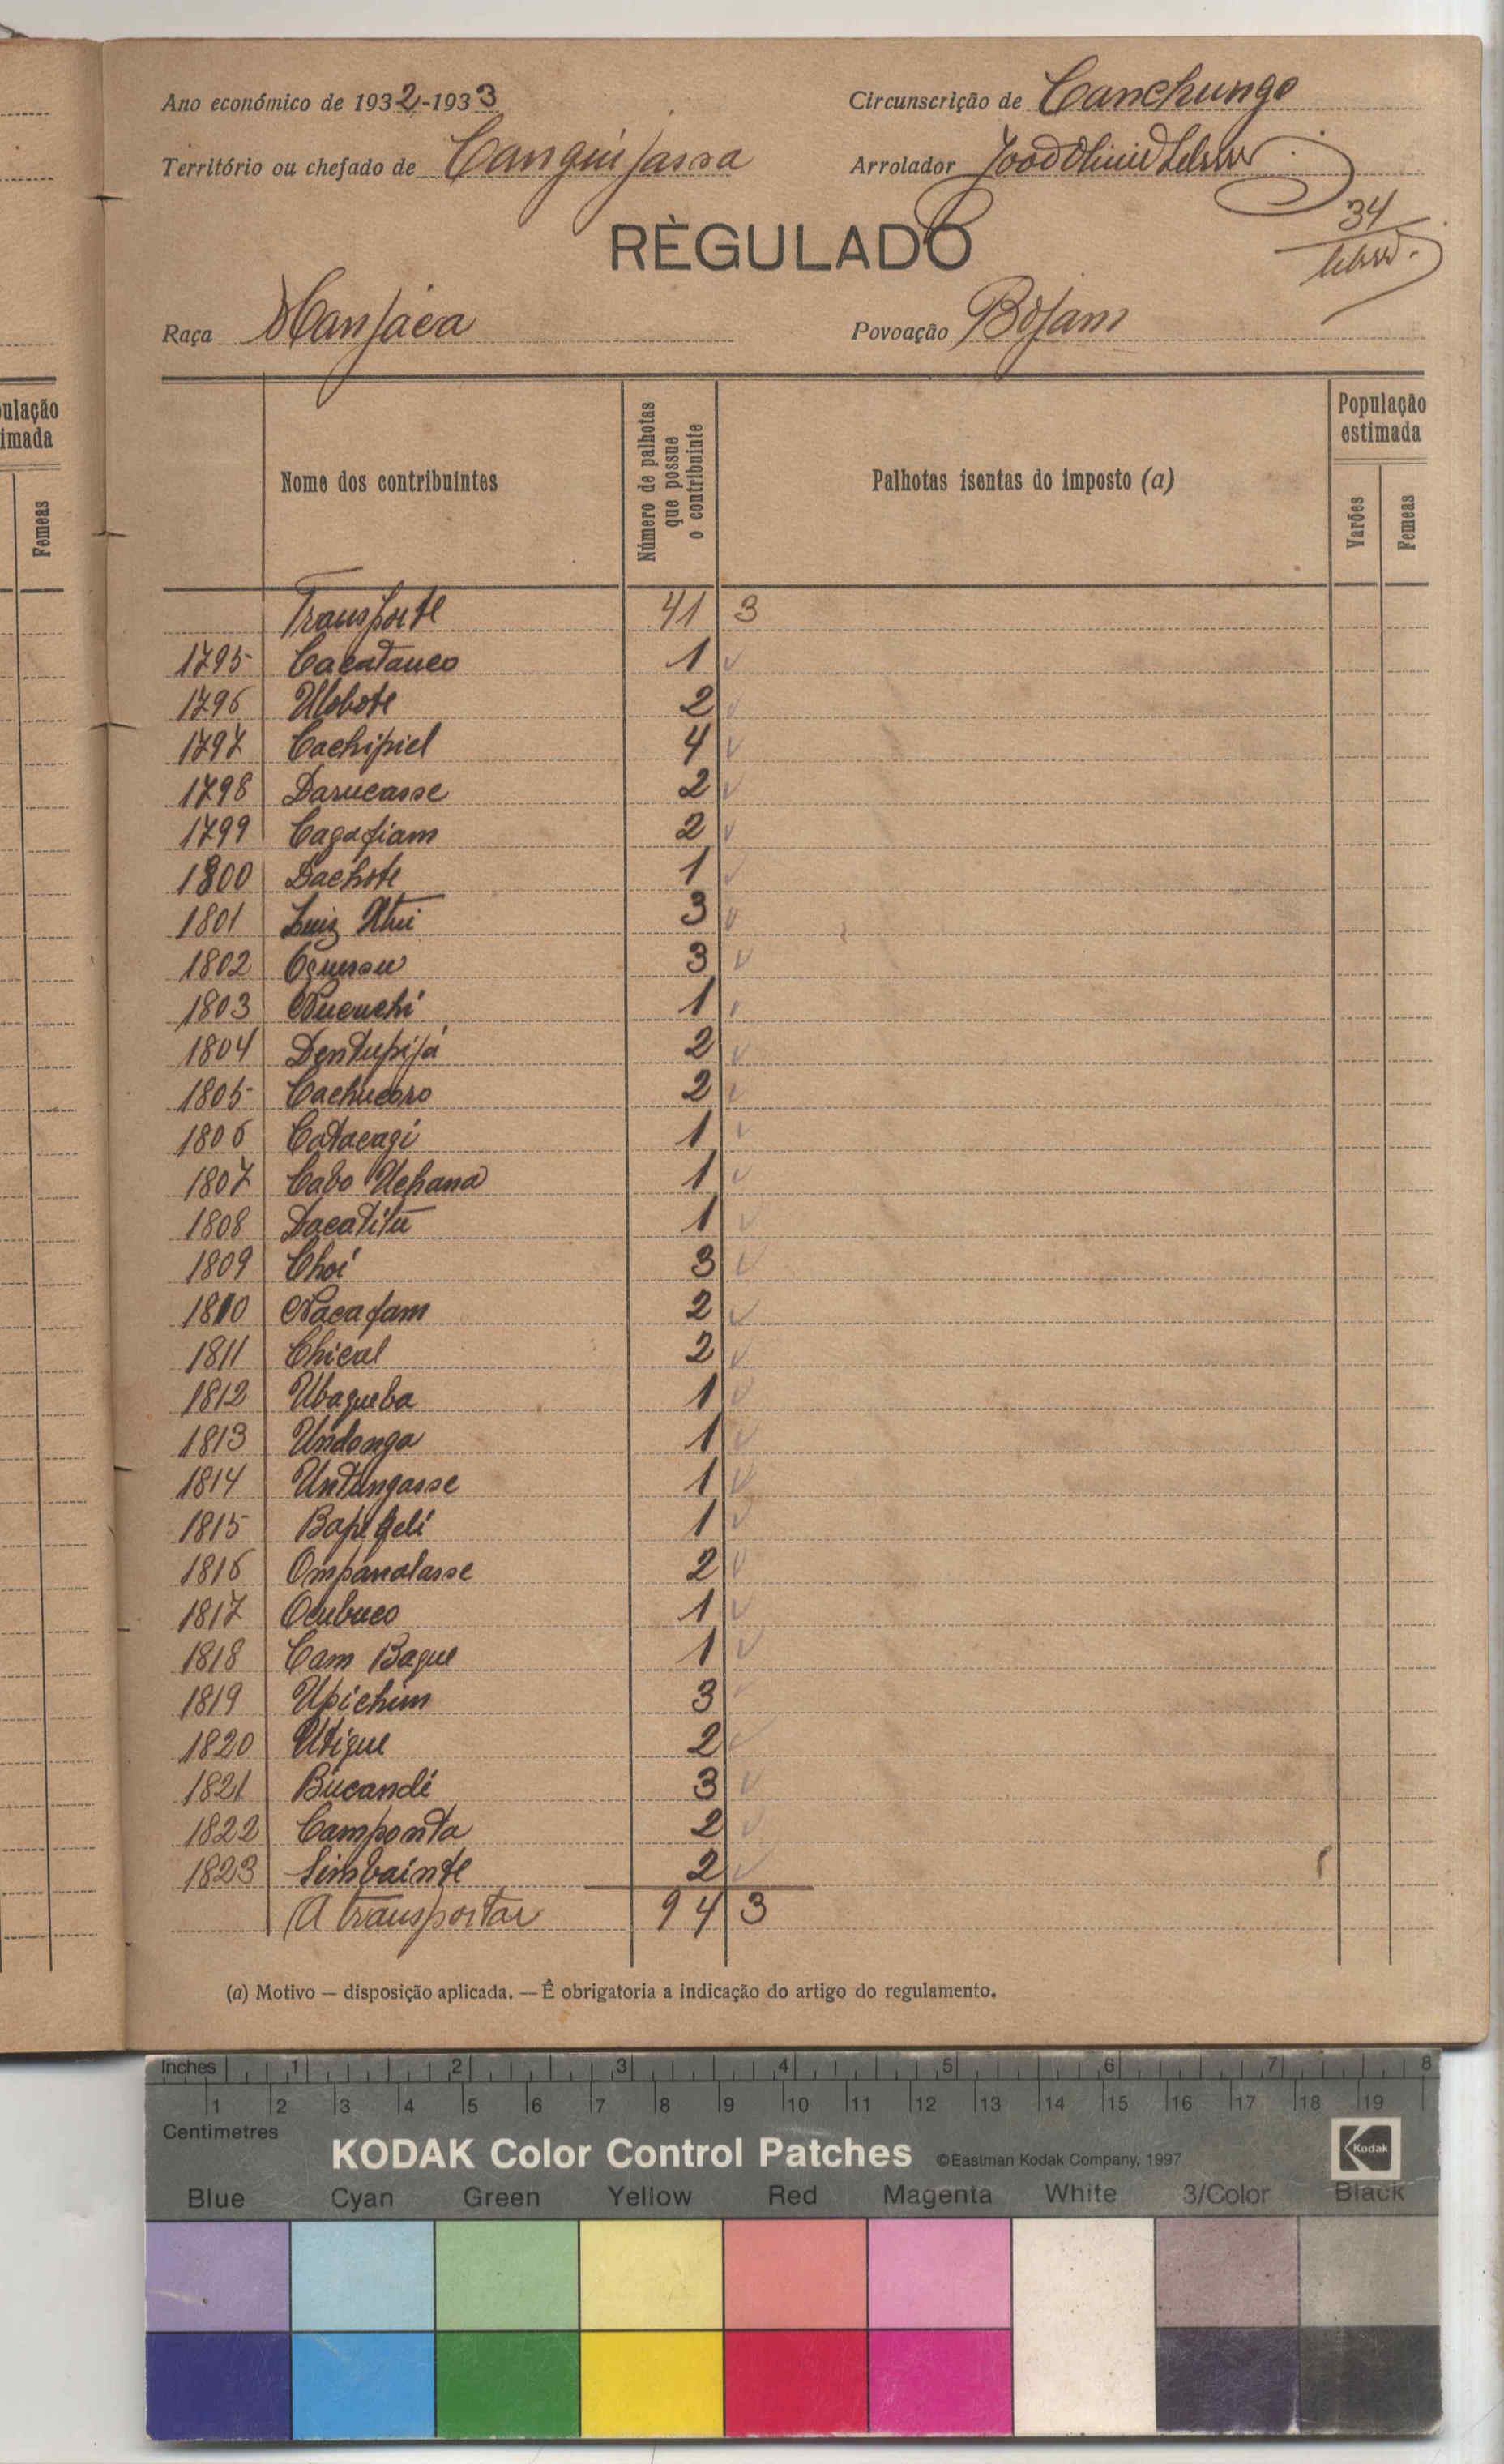 Ano económico de 1932-1933
Circunscrição de Canchungo
Território ou chefado de Canguijassa
Arrolador
34
RÈGULADO
Raça Manjáca
Povoação Bojam
ulação
imada
Femeas
Nome dos contribuintes
Número de palhotas
que possue
o contribuinte
Palhotas isentas do imposto (a)
População
estimada
Varões
Femeas
Transporte 41 3
1795 Cacatanco 1
1796 Ulobote 2
1797 Cachipiel 4
1798 Darucasse 2
1799 Cagafiam 2
1800 Dachote 1
1801 Luiz 3
1802 3
1803 Nucuchi 1
1804 Dentupijá 2
1805 Cachucoro 2
1806 Catacagi 1
1807 Cabo Uchana 1
1808 1
1809 Choi 3
1810 Nacafam 2
1811 Chical 2
1812 Ubagueba 1
1813 Undonga 1
1814 Untingasse 1
1815 1
1816 Ompanalasse 2
1817 Ocubuco 1
1818 Cam Bague 1
1819 Upichim 3
1820 Utique 2
1821 Bucandé 3
1822 Camponta 2
1823 Simbainte 2
A transportar 94 3
(a) Motivo — disposição aplicada. — É obrigatoria a indicação do artigo do regulamento.
Inches 1 2 3 4 5 6 7 8
1 2 3 4 5 6 7 8 9 10 11 12 13 14 15 16 17 18 19
Centimetres
KODAK Color Control Patches ©Eastman Kodak Company, 1997 Kodak
Blue Cyan Green Yellow Red Magenta White 3/Color Black